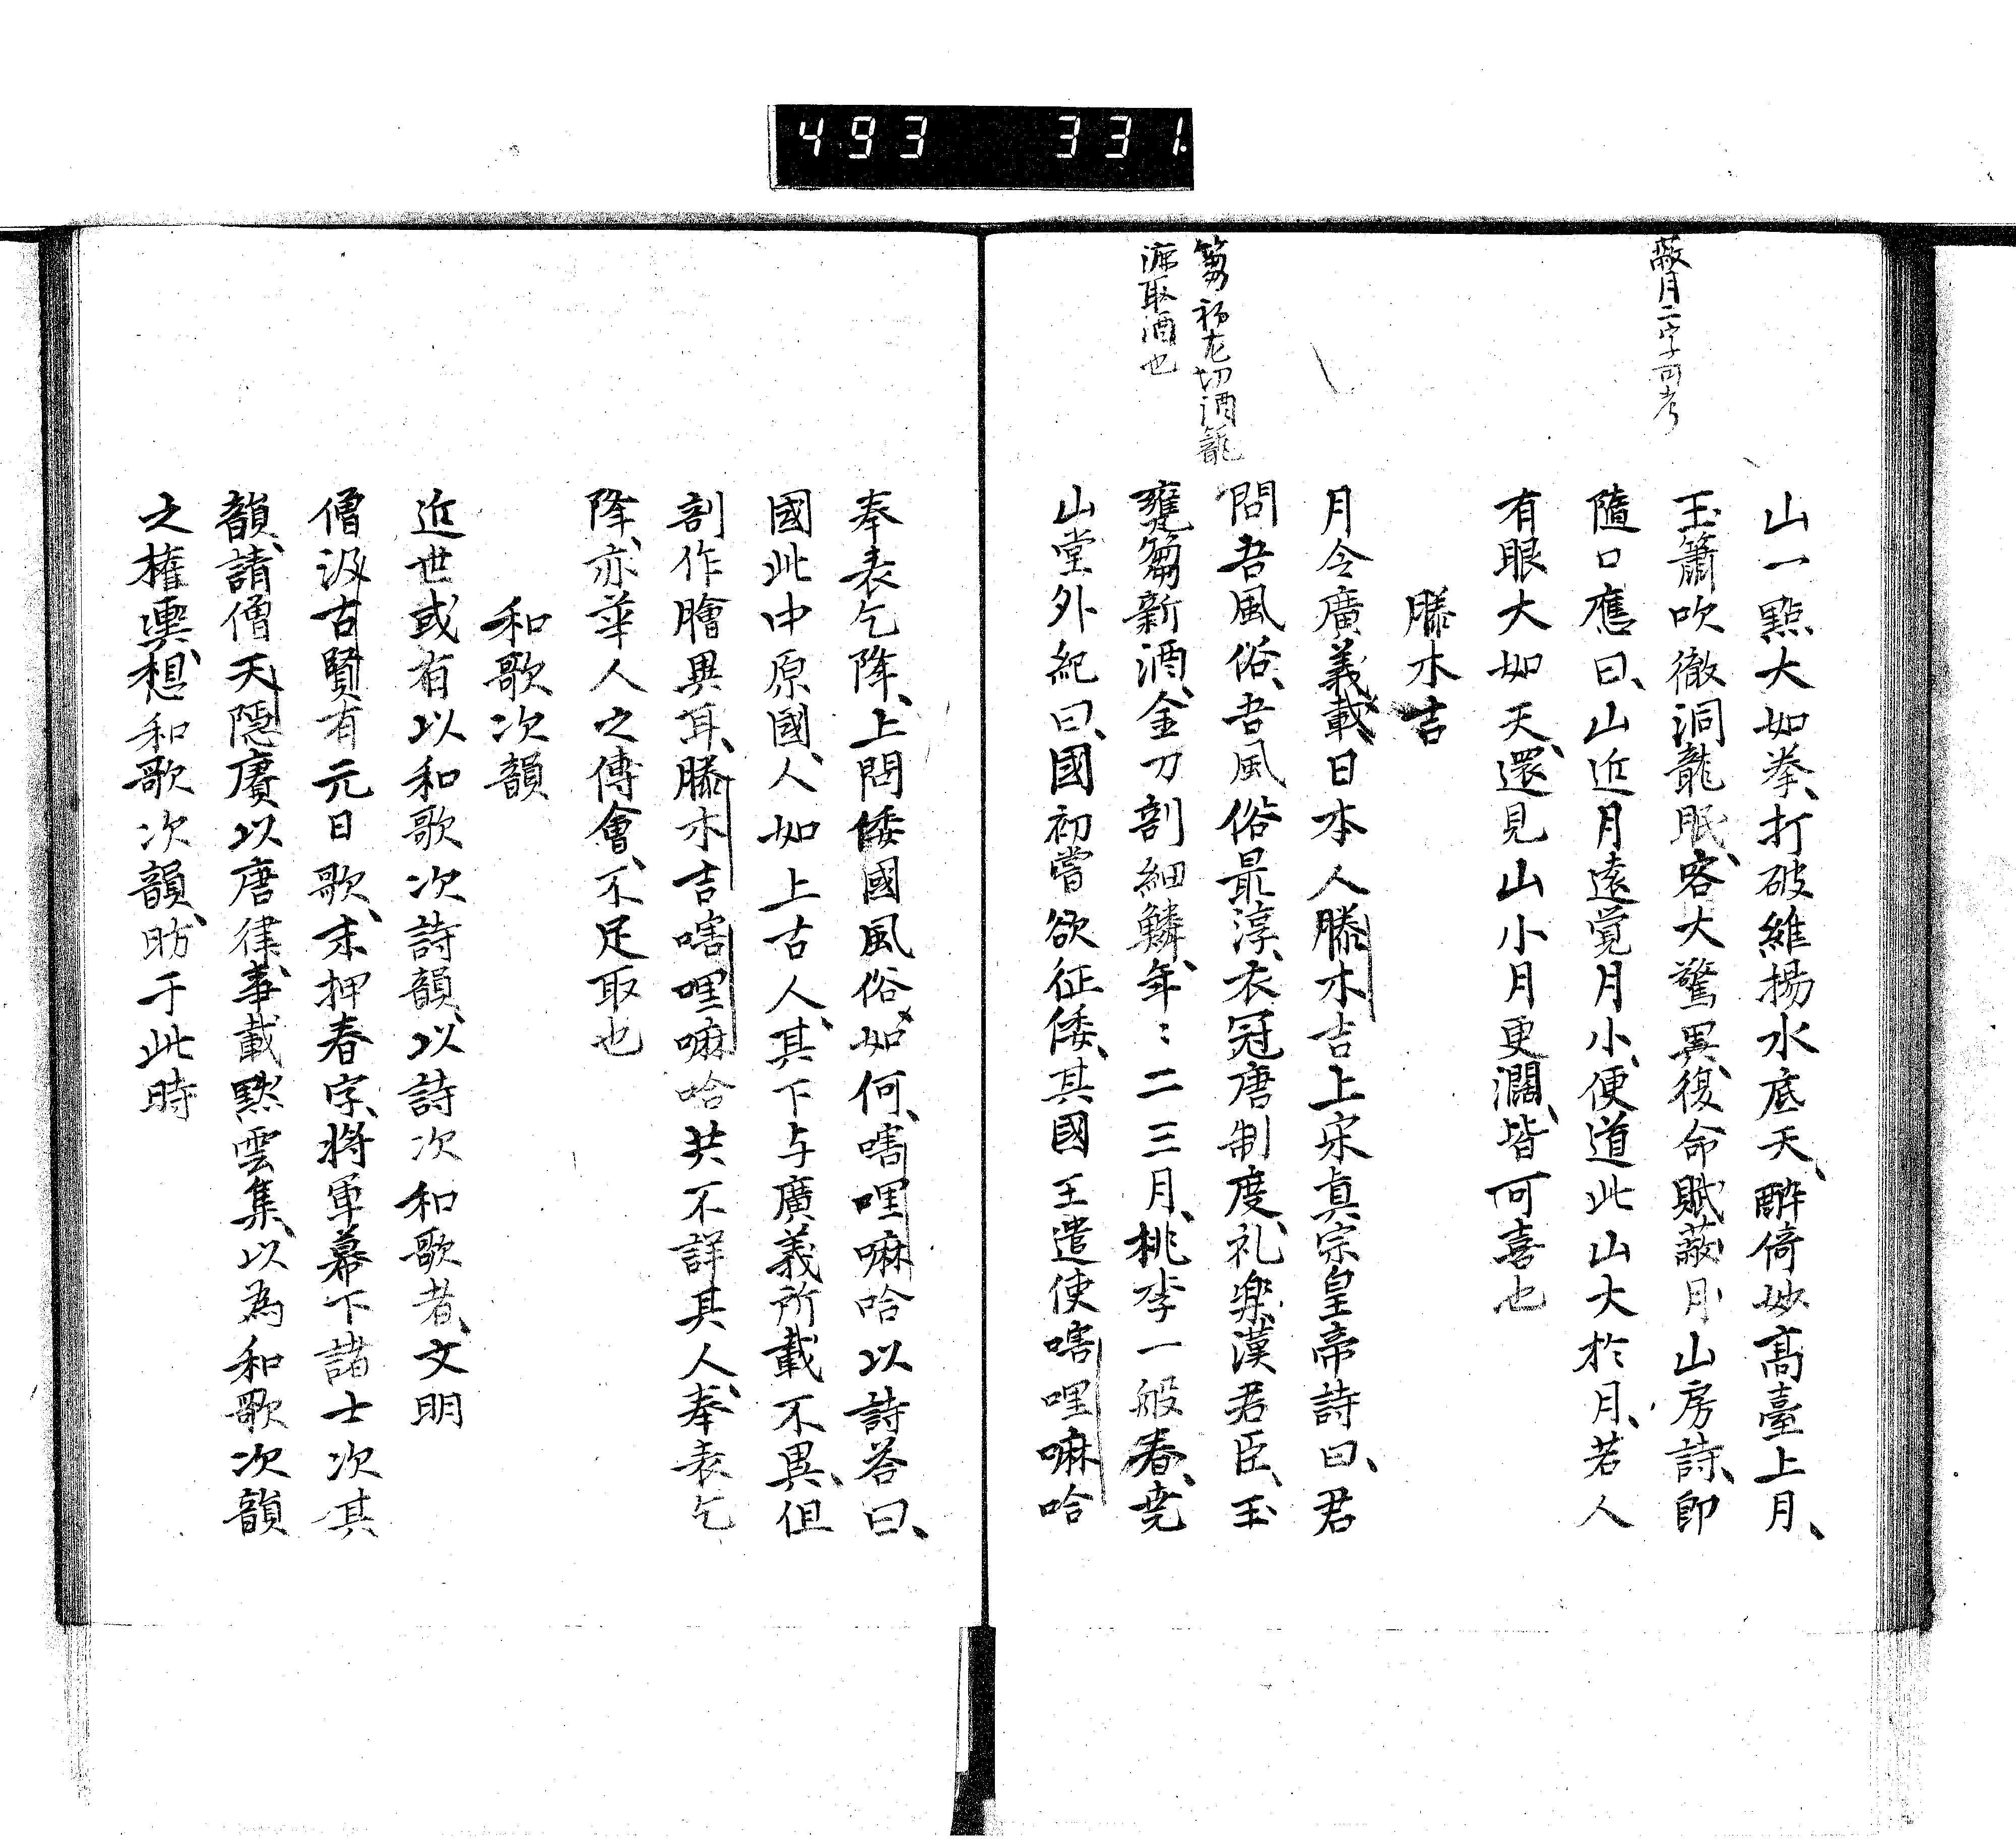 493 331.
蔽月二字可考
山一點大如拳、打破維揚水底天、酔倚妙高臺上月、
玉簫吹徹洞龍眠、客大驚異、復命賦蔽月山房詩、即
隨口應曰、山近月遠覚月小、便道此山大於月、若人
有眼大如天、還見山小月更濶、皆可喜也
滕木吉
月令廣義載、日本人滕木吉上宋真宗皇帝詩曰、君
問吾風俗、吾風俗最淳、衣冠唐制度、礼樂漢君臣、玉
篘初尤切酒籠
漉取酒也
甕篘新酒、金刀剖細鱗、年〻二三月、桃李一般春、尭
山堂外紀曰、國初嘗欲征倭、其國王遣使嗐哩嘛哈
奉表乞降、上問倭國風俗如何、嗐哩嘛哈以詩荅曰、
國比中原國、人如上古人、其下与廣義所載不異、但
剖作膾異耳、滕木吉嗐哩嘛哈共不詳其人、奉表乞
降、亦華人之傳會、不足取也
和歌次韻
近世或有以和歌次詩韻、以詩次和歌者、文明
僧汲古賢有元日歌、末押春字、将軍幕下諸士次其
韻、請僧天隠賡以唐律、事載黙雲集、以為和歌次韻
之権輿、想和歌次韻、昉于此時